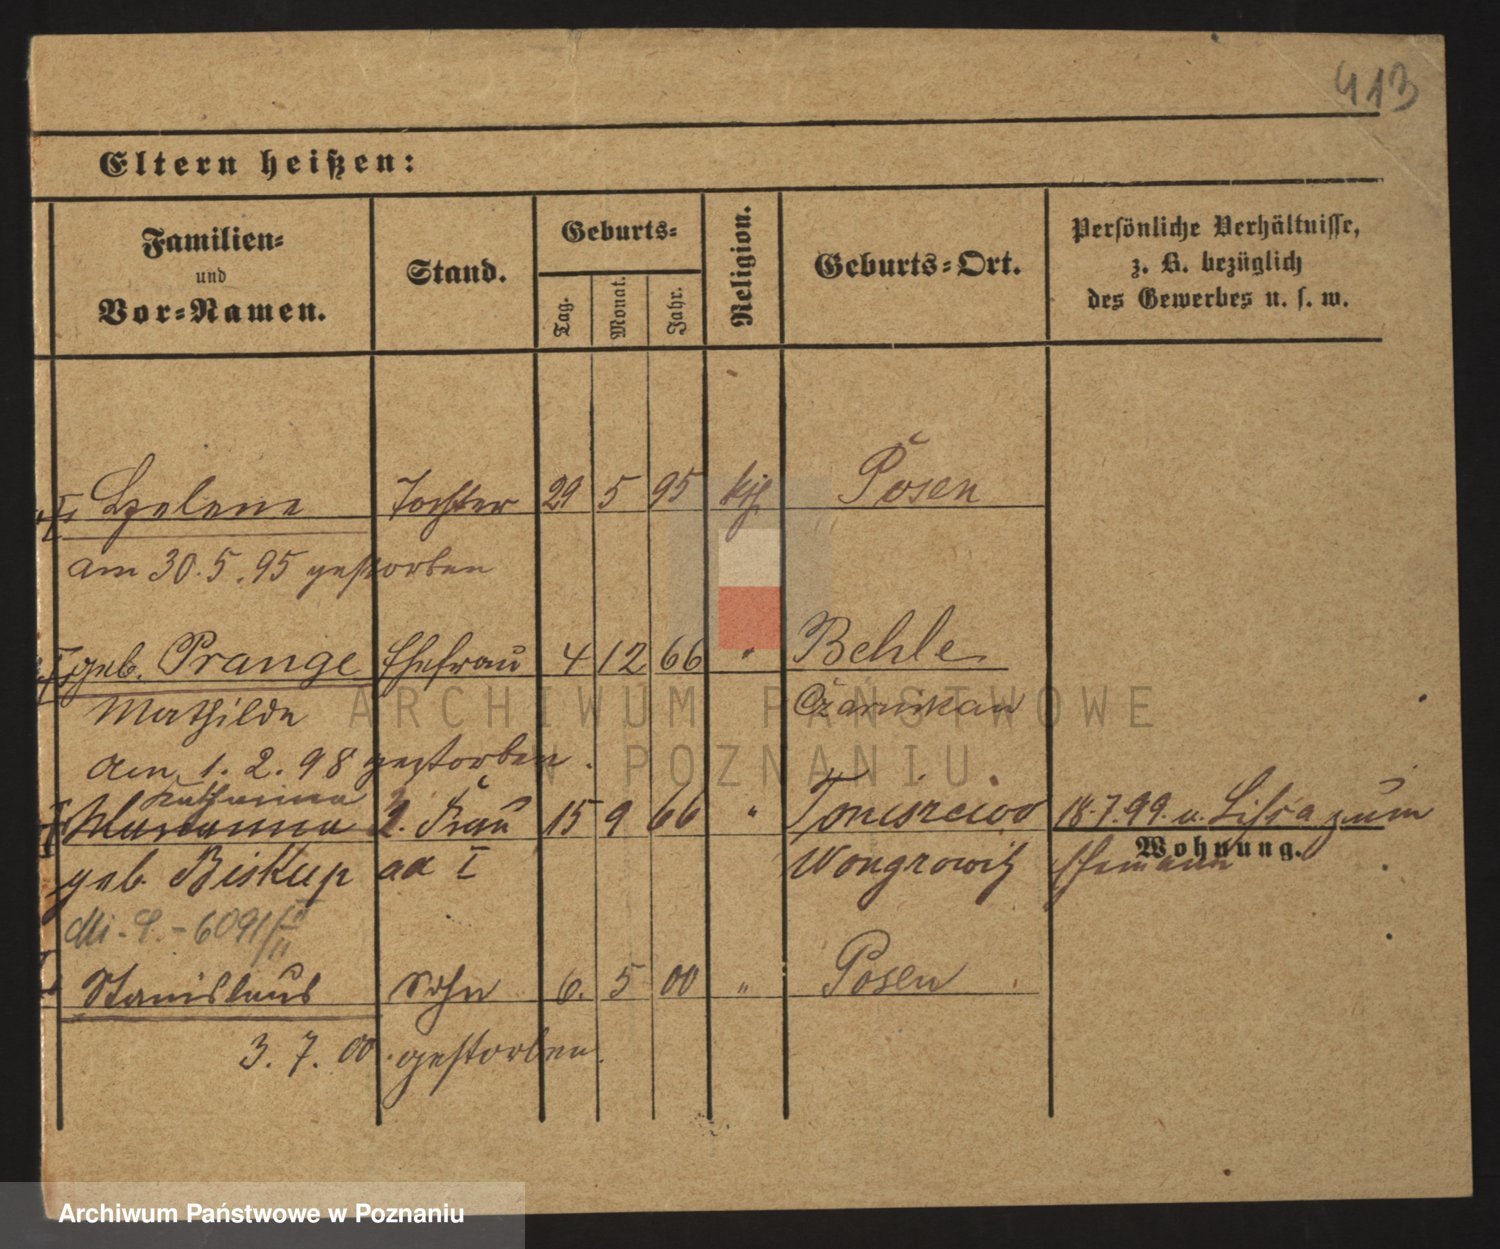 413
Eltern heißen:
Familien-
und
Vor-Namen.
Stand.
Geburts-
Tag.
Monat.
Jahr.
Religion.
Geburts-Ort.
Persönliche Verhältnisse,
z. B. bezüglich
des Gewerbes u. s. w.
Helene Tochter 29 5 95 kth Posen
am 30.5.95 gestorben
geb. Prange Ehefrau 4 12 66 " Behle
Mathilde Czarnikau
am 1. 2. 98 gestorben.
Katharina
Marianna 2. Frau 15 9 66 " 18.7.99. v. Lissa zum
Wohnung.
geb. Biskup ad I Wongrowitz Ehemann
Stanislaus Sohn 6. 5 00 " Posen
3. 7. 00. gestorben.
ARCHIWUM PAŃSTWOWE
W POZNANIU
Archiwum Państwowe w Poznaniu